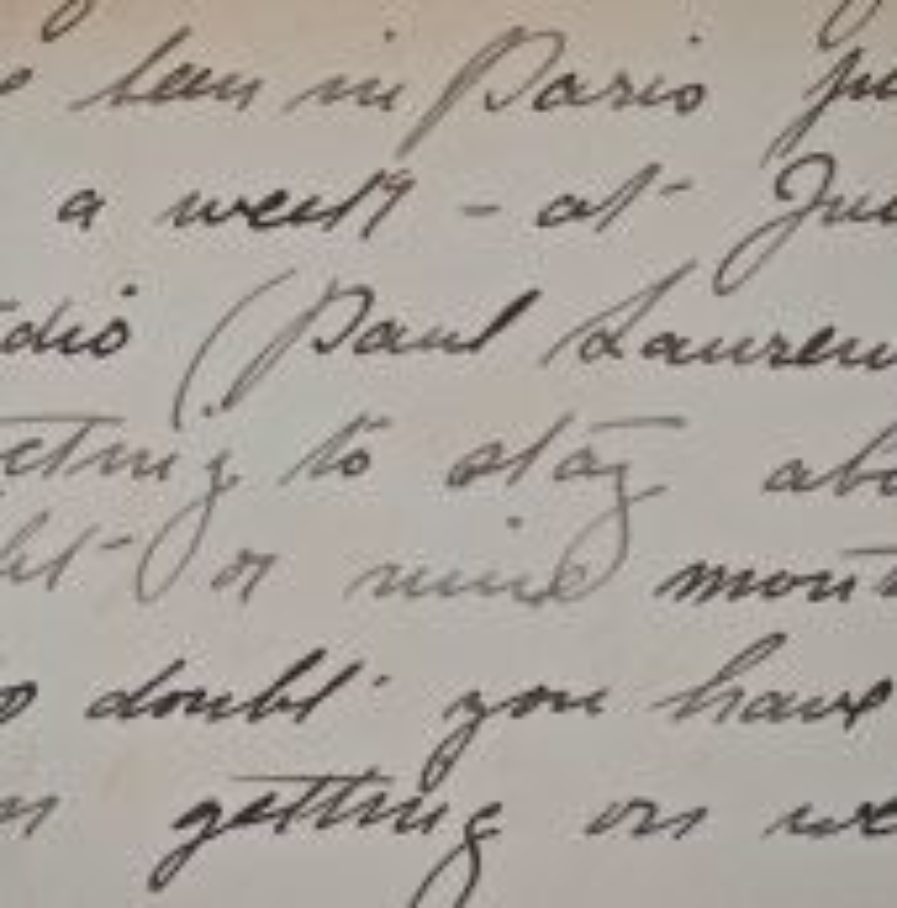 been in Paris
a week - at
(Paul Lauren
to stay abo
or nine mont
doubt you have
getting on we